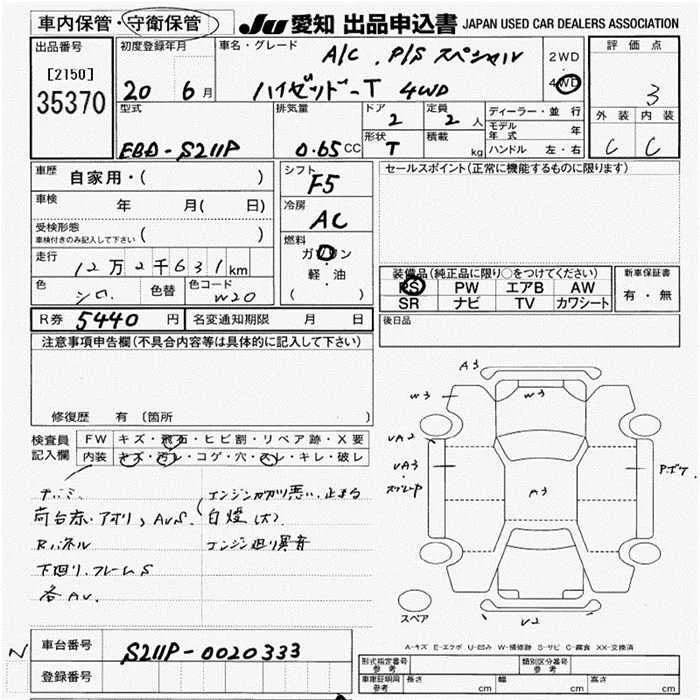 車内保管・守衛保管 JU 愛知 出品申込書 JAPAN USED CAR DEALERS ASSOCIATION
出品番号 初度登録年月 車名・グレード A/C . P/S スペシャル 2WD・4WD 評価点
[2150]
35370 20 6月 ハイゼット T 4WD 3
型式 排気量 ドア 2 定員 2人 ディーラー・並行 外装 内装
EBD-S211P 0.65CC 形状 T 積載 kg モデル年式 年 C C
ハンドル 左・右
車歴 自家用・( ) シフト F5 セールスポイント(正常に機能するものに限ります)
車検 年 月( 日) 冷房 AC
受検形態
車検付きのみ記入して下さい ( )
燃料 ガソリン
軽・油
( )
走行 12万2千631km
色 シロ 色替 色コード W20
装備品(純正品に限り○をつけてください) 新車保証書
PS PW エアB AW 有・無
SR ナビ TV カワシート
R券 5440円 名変通知期限 月 日 後日品
注意事項申告欄(不具合内容等は具体的に記入して下さい)
修復歴 有 〔箇所
検査員記入欄 FW キズ・飛石・ヒビ割・リペア跡・X要
内装 キズ・汚レ・コゲ・穴・スレ・キレ・破レ
荷台赤・アオリ, AUS.
白煙(大)
Rパネル
エンジン廻り異音
下廻り.フレームS
各AU.
A3
W3
W3
UA2
UA3
A3
U2
スペア
A-キズ E-エクボ U-凹み W-補修跡 S-サビ C-腐食 XX-交換済
N 車台番号 S211P-0020333
登録番号
形式指定番号 参考 類別区分番号 参考
車庫証明用 参考 長さ cm 幅 cm 高さ cm